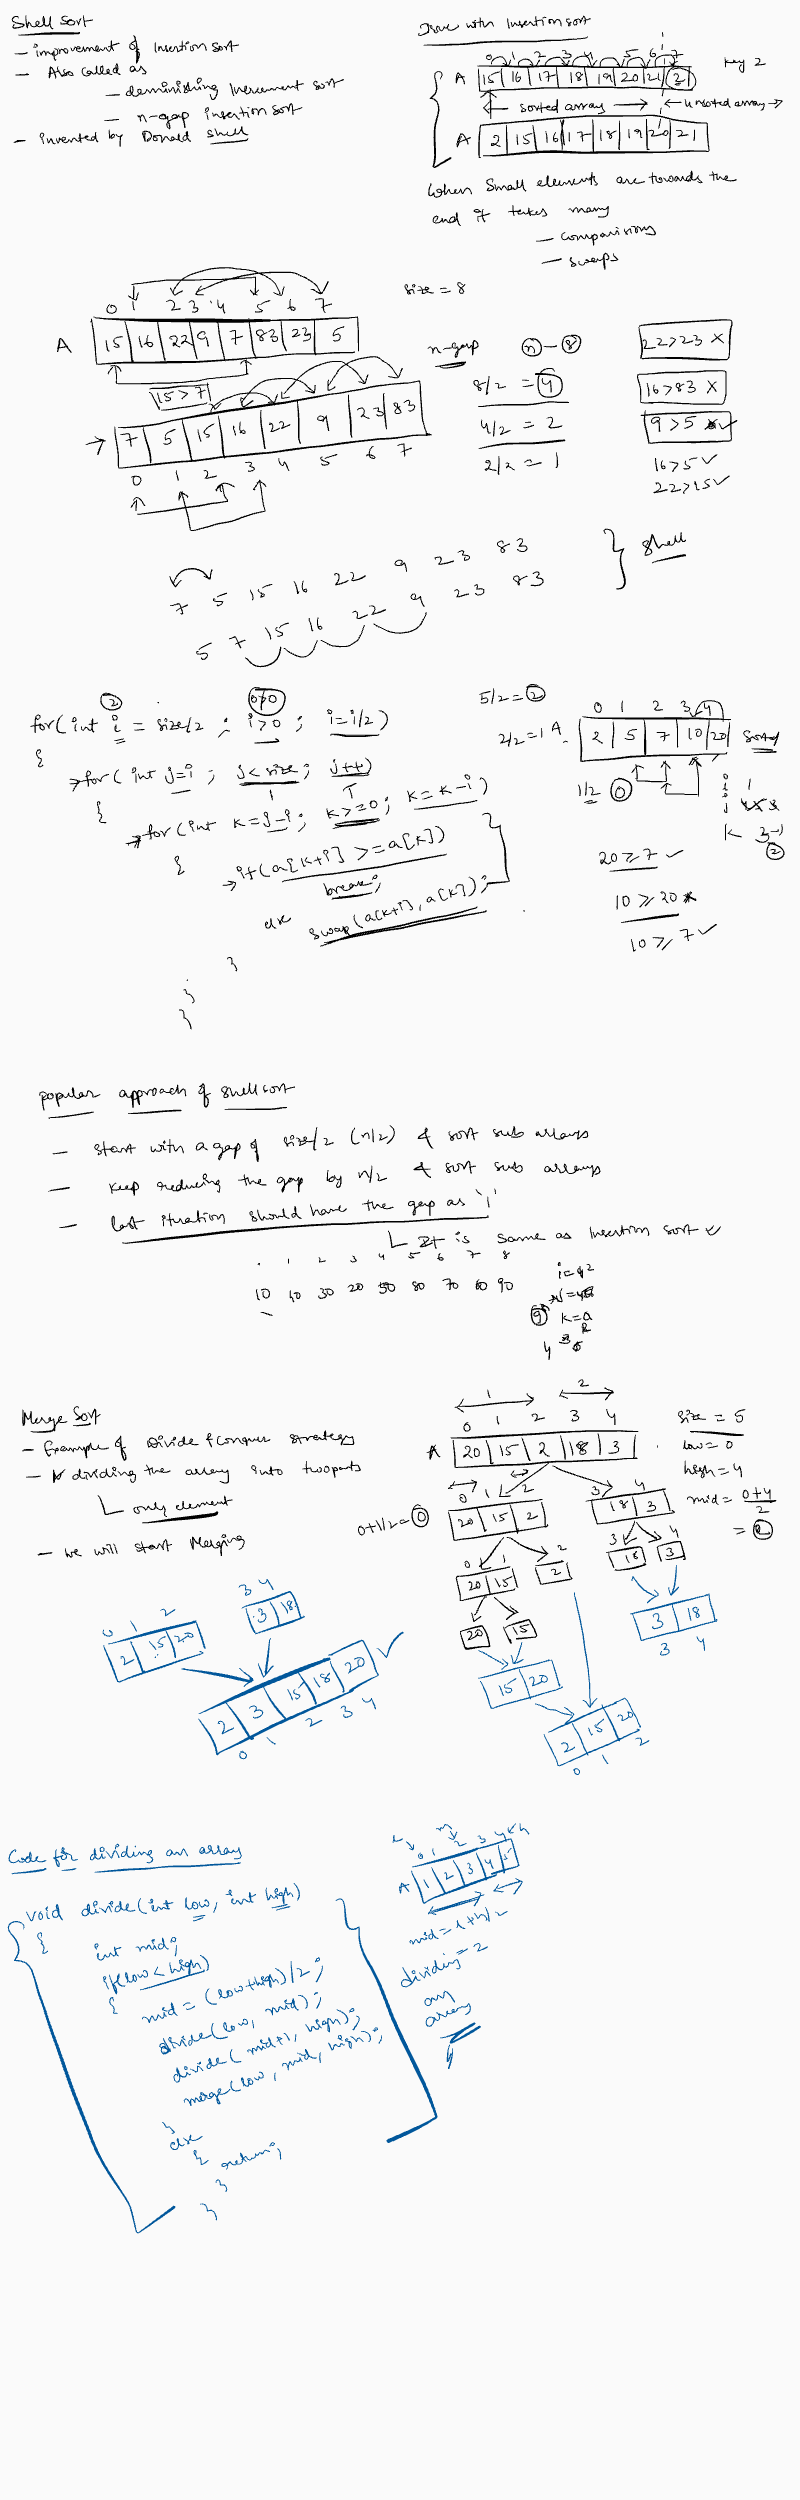 Shell Sort
- improvement of Insertion sort
- Also called as
- deminishing Increment sort
- n-gap insertion sort
- invented by Donald Shell
Issue with Insertion sort
0 1 2 3 4 5 6 7
A 15 16 17 18 19 20 21 2 key 2
sorted array unsorted array
A 2 15 16 17 18 19 20 21
When Small elements are towards the
end it takes many
- comparisions
- swaps
size = 8
0 1 2 3 4 5 6 7
A 15 16 22 9 7 83 23 5
15 > 7
n-gap n - 8
8/2 = 4
4/2 = 2
2/2 = 1
22>23 x
16>83 x
9>5 ✓
16>5 ✓
22>15 ✓
7 5 15 16 22 9 23 83
0 1 2 3 4 5 6 7
7 5 15 16 22 9 23 83
5 7 15 16 22 9 23 83
} Shell
2 0>0
for(int i = size/2 ; i>0 ; i=i/2)
{
for( int j=i ; j<size ; j++)
{
for(int K=j-i ; K>=0 ; K=K-i)
{
if(a[K+i] >= a[K])
break;
else
swap(a[K+i], a[K]);
}
}
}
5/2 = 2
2/2 = 1
1/2 0
0 1 2 3 4
A 2 5 7 10 20 Sorted
i 1
j
K 3-1
2
20 ≥ 7 ✓
10 ≥ 20 x
10 ≥ 7 ✓
popular approach of shell sort
- Start with a gap of size/2 (n/2) & sort sub arrays
- Keep reducing the gap by n/2 & sort sub arrays
- last itration should have the gap as '1'
It is same as Insertion sort
1 2 3 4 5 6 7 8
10 40 30 20 50 80 70 60 90
Merge Sort
- Example of Divide & Conquer strategy
- dividing the array into two parts
only element
- we will start Merging
1 2
0 1 2 3 4
A 20 15 2 18 3
size = 5
low = 0
high = 4
mid = 0+4/2
= 2
0+1/2 = 0
0 1 2
20 15 2
3 4
18 3
0 1
20 15
2
2
3 4
18 3
20 15
15 20
3 18
3 4
2 15 20
0 1 2
0 1 2
2 15 20
3 4
3 18
2 3 15 18 20
0 1 2 3 4
Code for dividing an array
void divide(int low, int high)
{
int mid;
if(low < high)
{
mid = (low+high)/2;
divide(low, mid);
divide( mid+1, high);
merge(low, mid, high);
}
else
{
return;
}
}
l m h
0 1 2 3 4
A 1 2 3 4 5
mid = l+h/2
= 2
dividing
an
array